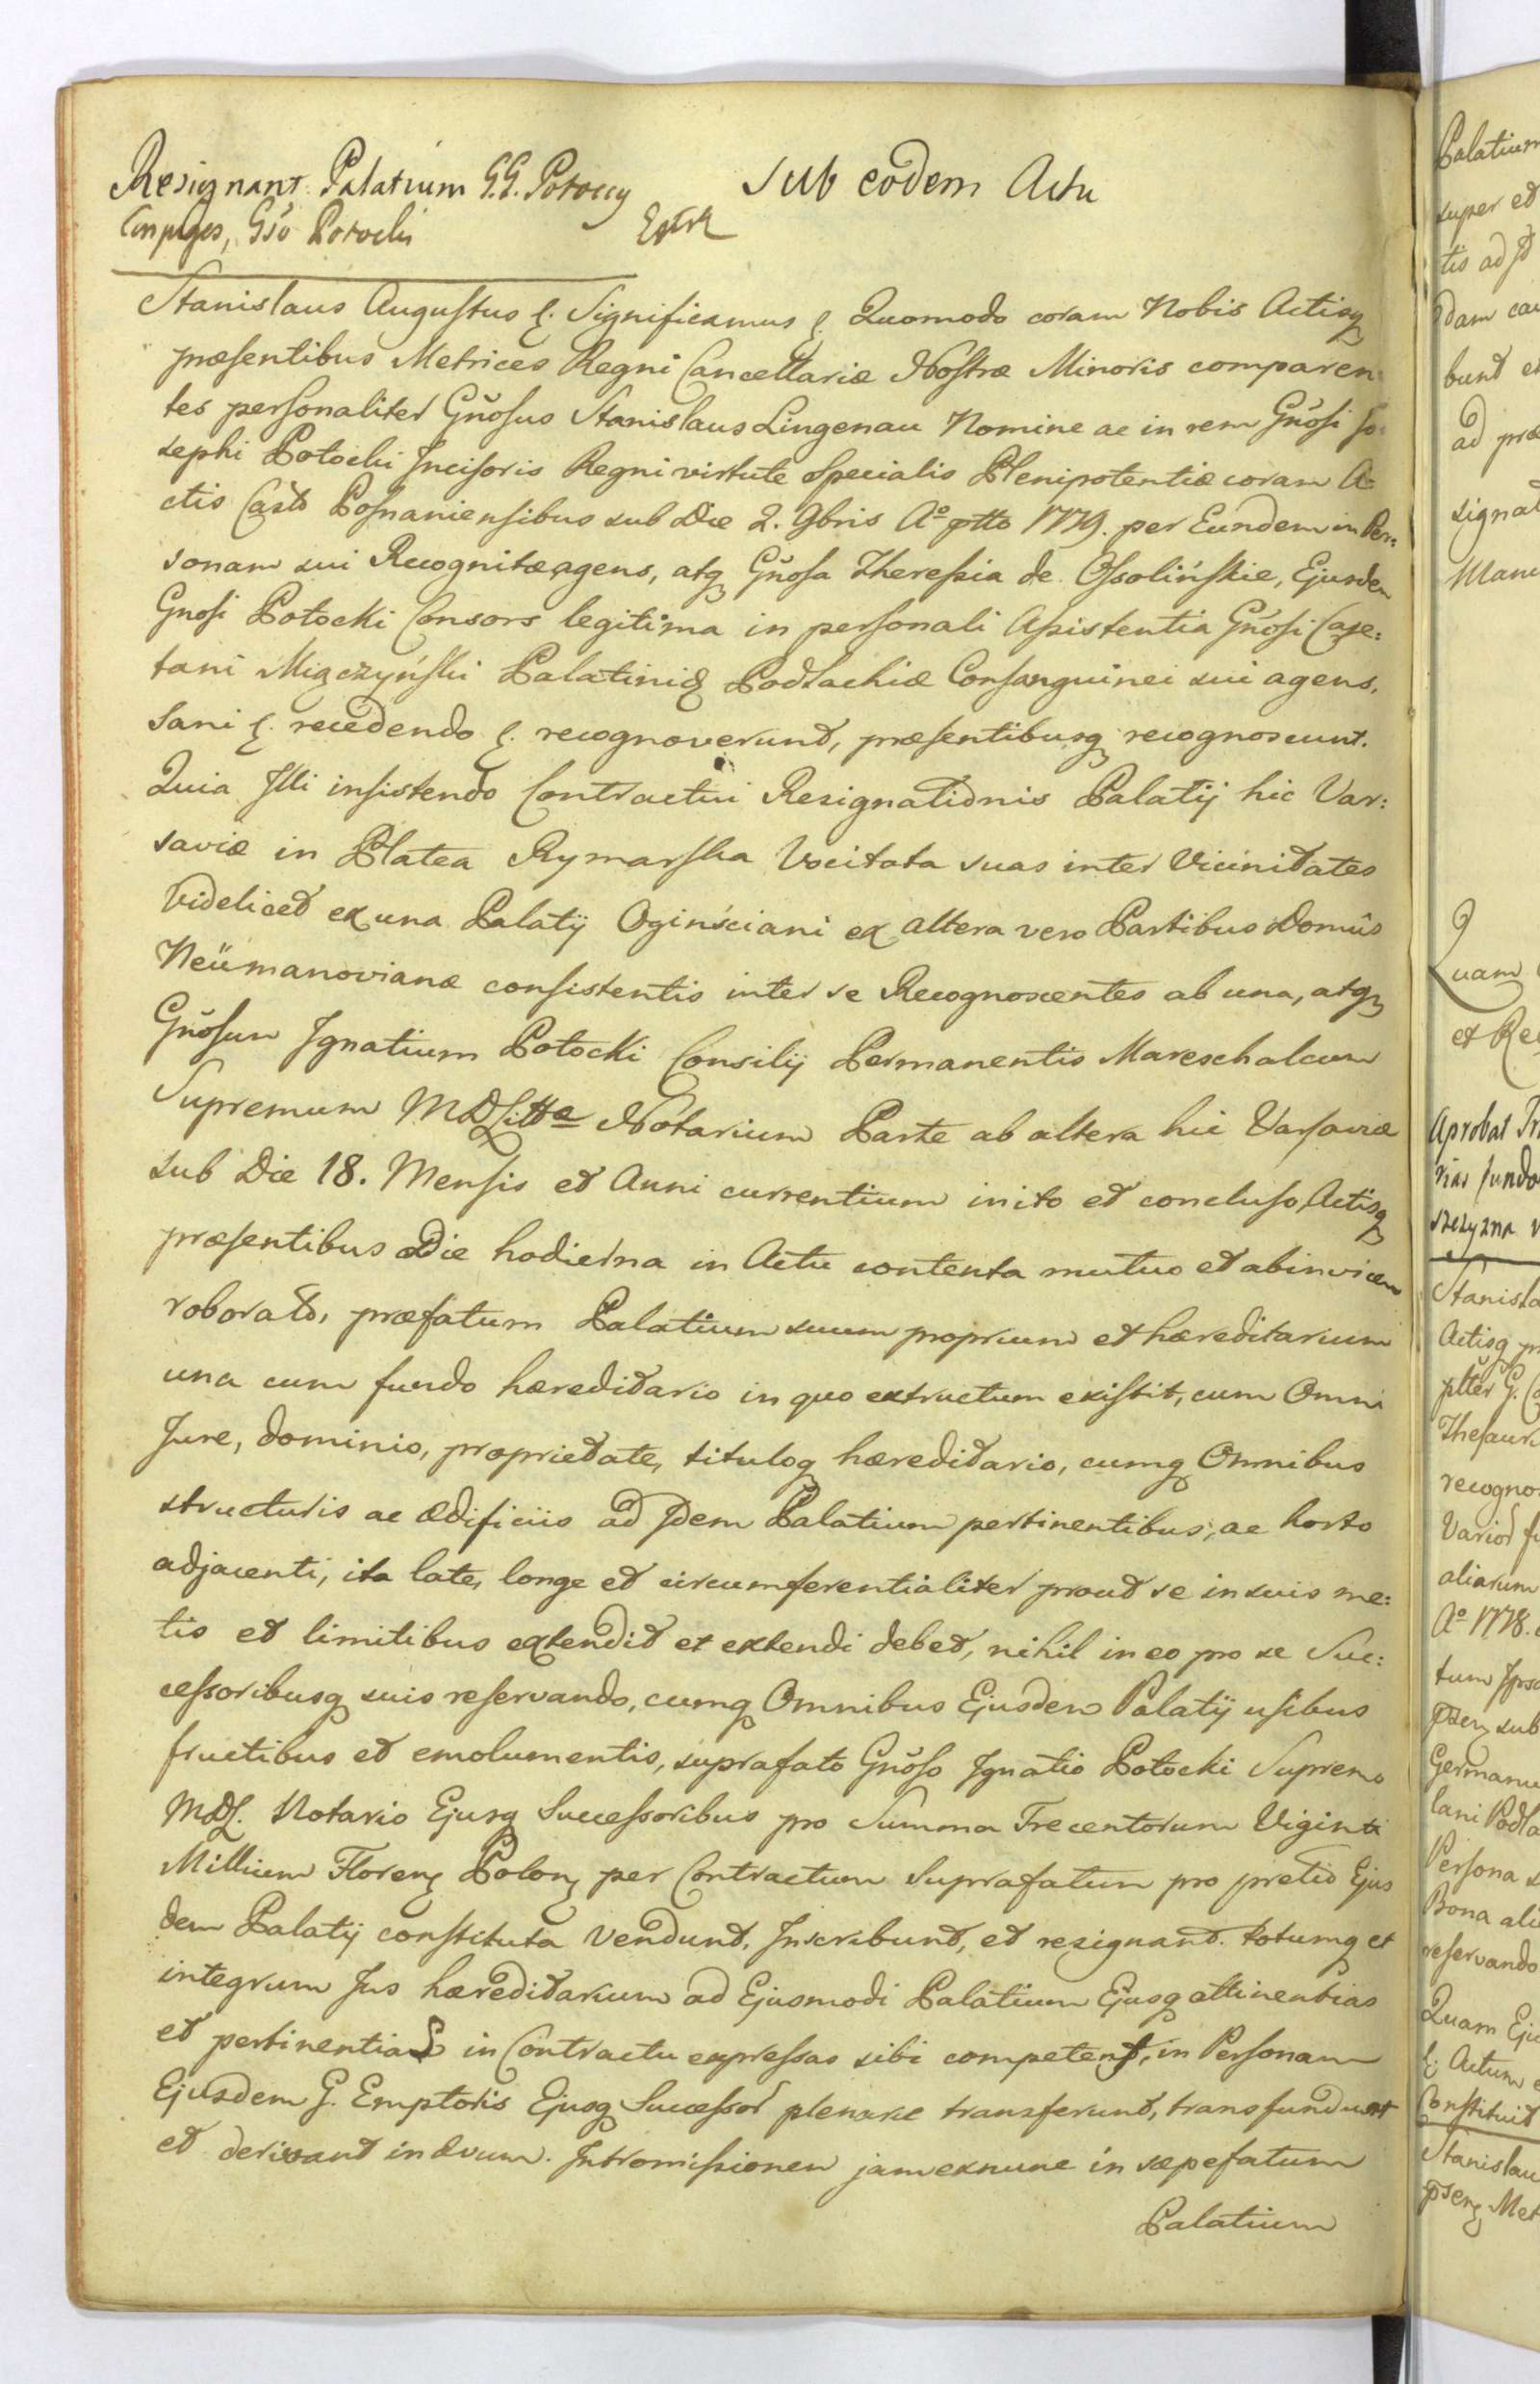 Resignant Palatium G.G. Potoccy
Sub eodem Actu
Conjuges, Gso Potocki
Extr
Stanislaus Augustus &. Significamus &. Quomodo coram Nobis Actisq
præsentibus Metrices Regni Cancellariæ Nostræ Minoris comparen
tes personaliter Gñosus Stanislaus Lingenau Nomine ac in rem Gñosi Jo:
sephi Potocki Incisoris Regni virtute Specialis Plenipotentiæ coram A:
ctis Castr Posnaniensibus sub Die 2. 9bris A° ptto 1779. per Eundem in Per:
sonam sui Recognitæ agens, atq Gñosa Theresia de Ossolińskie, Ejusdem
Gnosi Potocki Consors legitima in personali Assistentia Gñosi Caje:
tani Miączyński Palatinid Podlachiæ Consanguinei sui agens,
Sani &. recedendo &. recognoverunt, præsentibusq recognoscunt.
Quia Illi insistendo Contractui Resignationis Palatij hic Var:
saviæ in Platea Rymarska Vocitata suas inter Vicinitates
videlicet ex una Palatij Ogińsciani ex altera vero Partibus Domûs
Neümanovianæ consistentis inter se Recognoscentes ab una, atq
Gñosum Ignatium Potocki Consilij Permanentis Mareschalcum
Supremum MDLittæ Notarium Parte ab altera hic Varsaviæ
sub Die 18. Mensis et Anni currentium inito et concluso, Actisq
præsentibus Die hodierna in Actu contenta mutuo et abinvicem
roborato, præfatum Palatium suum proprium et hæreditarium
una cum fundo hæreditario in quo extructum existit, cum Omni
Jure, dominio, proprietate, tituloq hæreditario, cumq Omnibus
structuris ac ædificiis ad Idem Palatium pertinentibus, ac horto
adjacenti, ita late, longe et circumferentialiter prout se in suis me:
tis et limitibus extendit et extendi debet, nihil in eo pro se Suc:
cessoribusq suis reservando, cumq Omnibus Ejusdem Palatij usibus
fructibus et emolumentis, suprafato Gñoso Ignatio Potocki Supremo
MDL. Notario Ejusq Successoribus pro Summa Trecentorum Viginti
Millium Floren Polon per Contractum Suprafatum pro pretio Ejus
dem Palatij constituta vendunt, Inscribunt, et resignant. totumq et
integrum Jus hæreditarium ad Ejusmodi Palatium Ejusq attinentias
et pertinentias in Contractu expressas sibi competens, in Personam
Ejusdem G. Emptoris Ejusq Successor plenarie transferunt, transfundunt
et derivant in ævum. Intromissionem jam exnunc in sæpefatum
Palatium